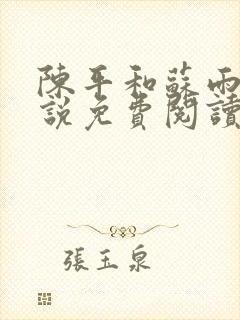 陳平和蘇雨
說免費閱讀
張玉泉